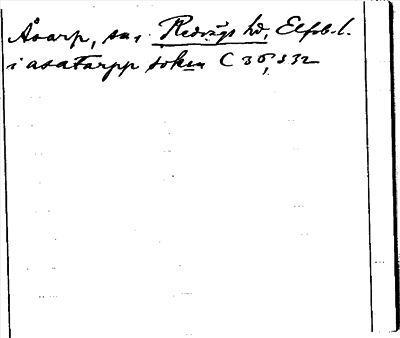 Åsarp, sn, Redvägs hd, Elfsb. l.
i asatarpp soken C 35, 332